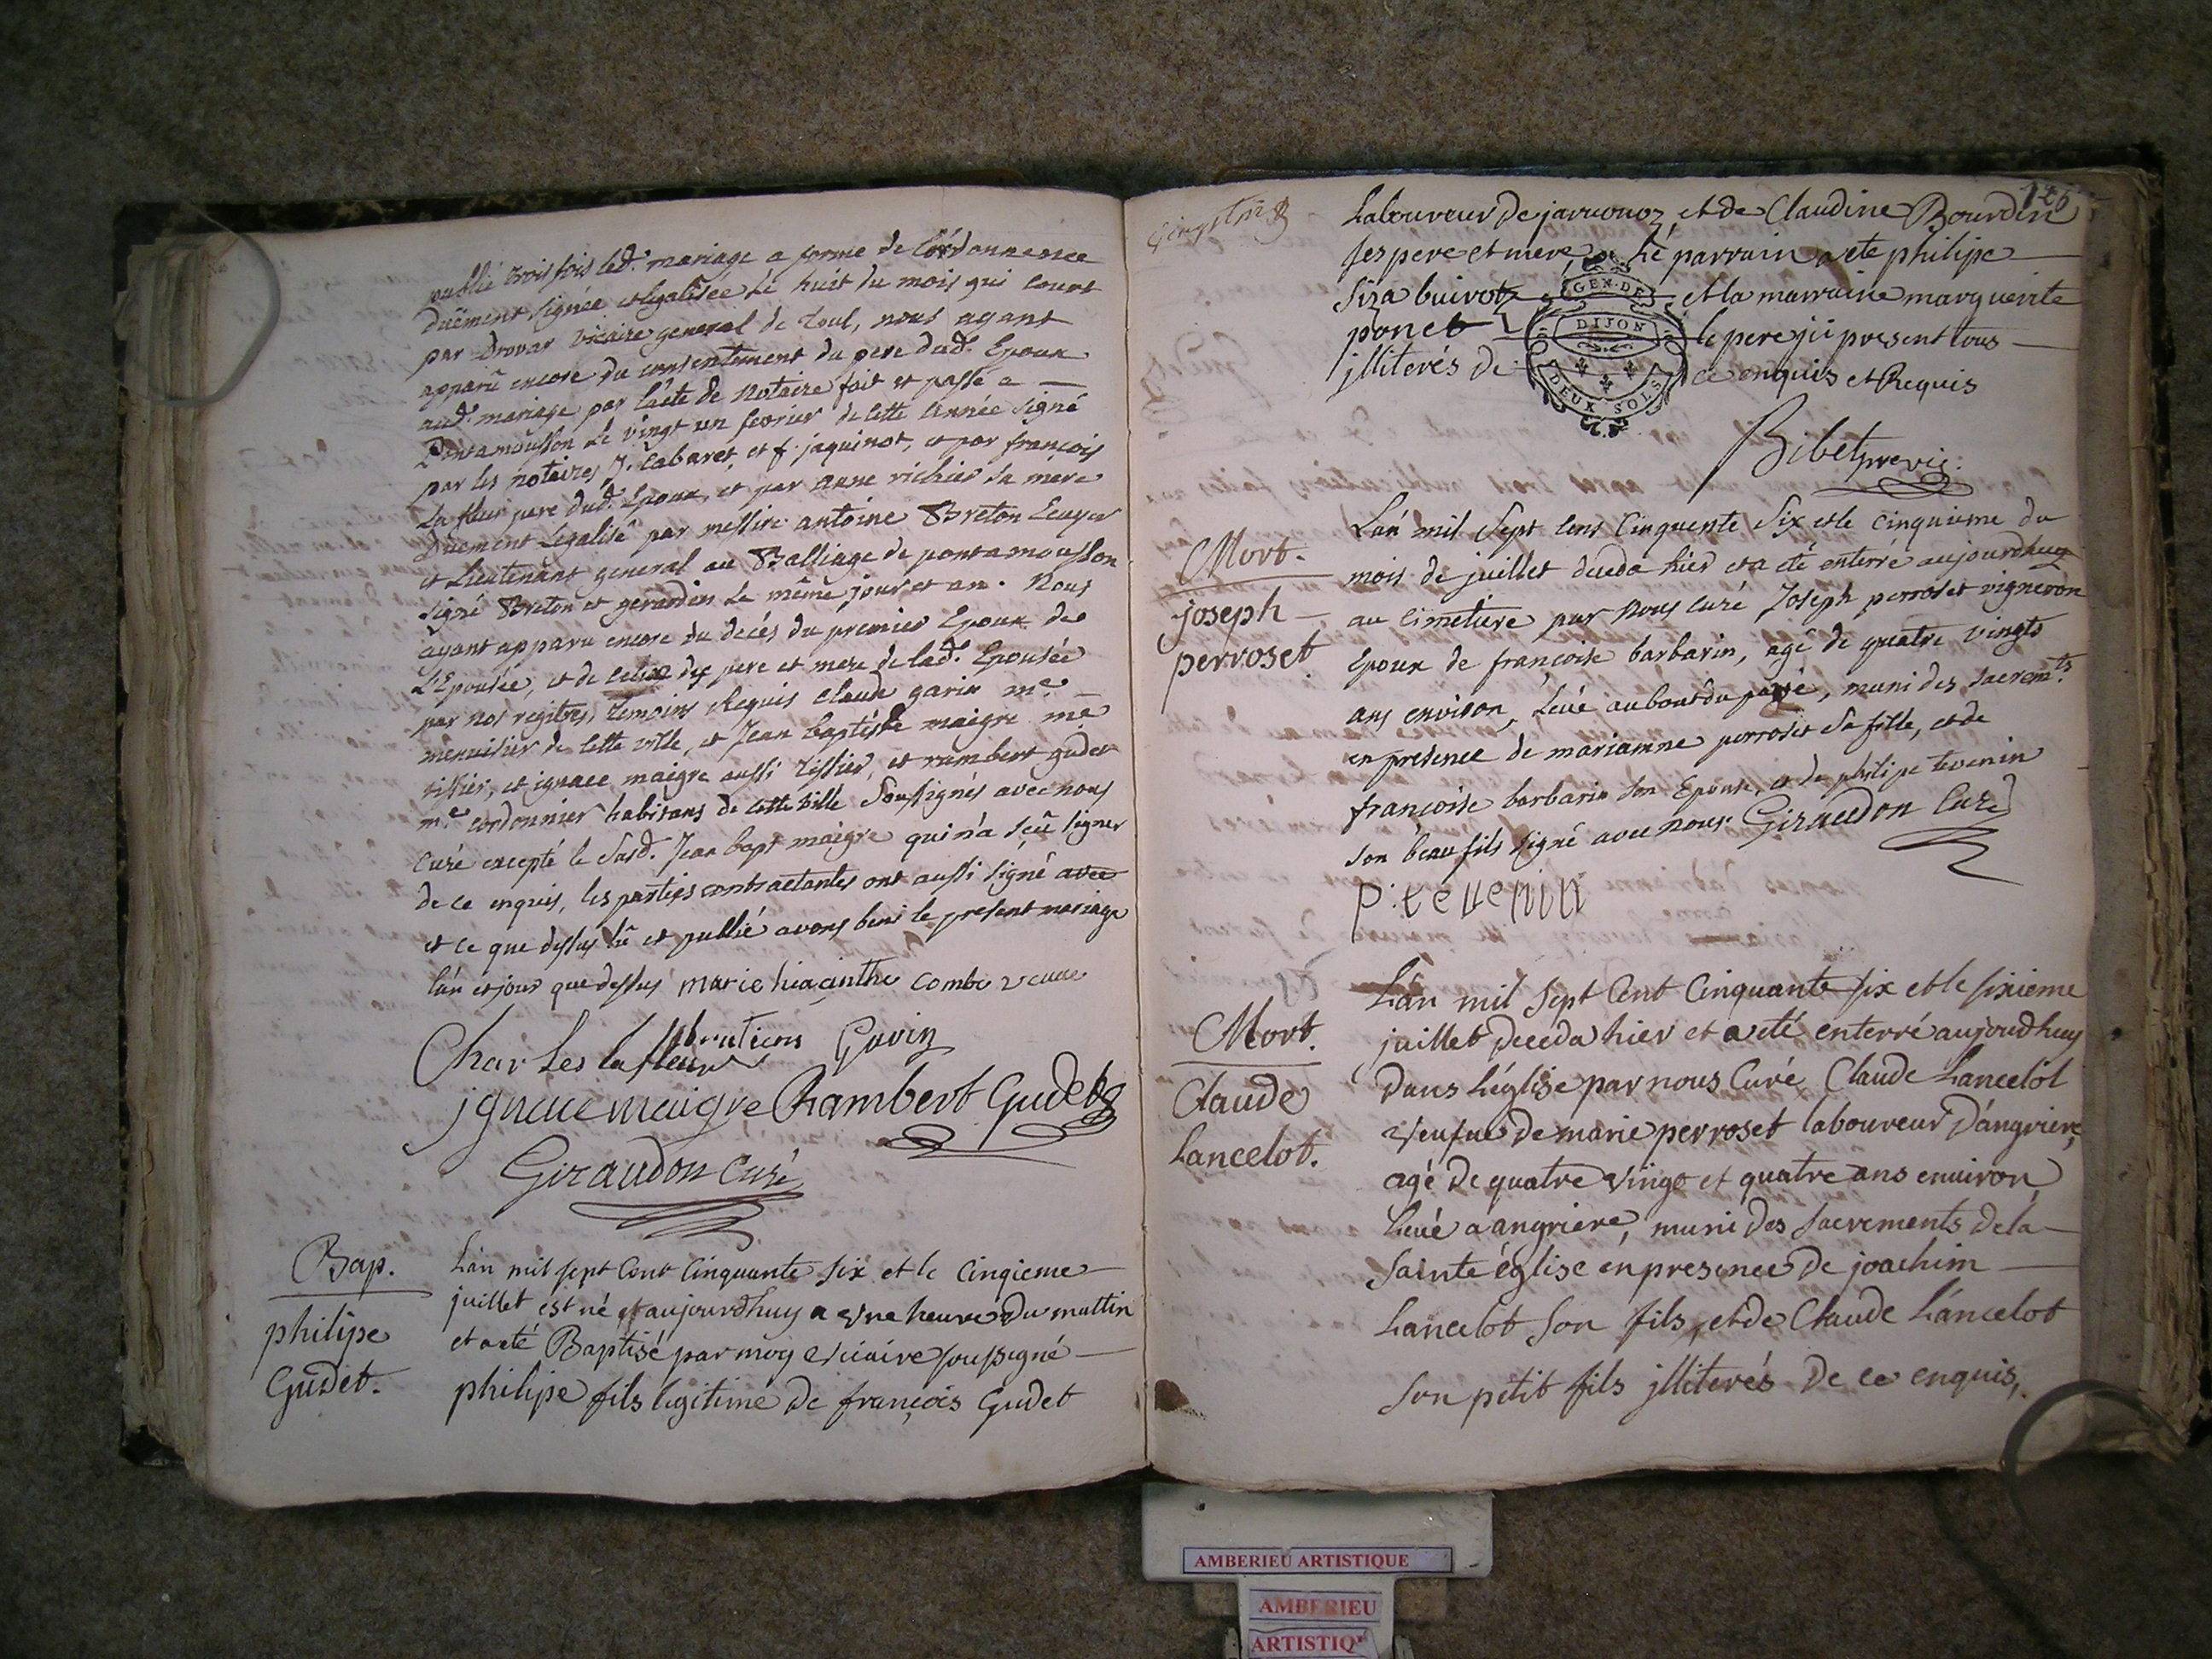 publié trois fois led. mariage a forme de l'ordonnence
duëment signée et legalisée Le huit du mois qui court
par Drovar vicaire general de Toul, nous ayant
apparû encore du consentement du pere dud. Epoux
aud. mariage par l'acte de notaire fait et passé a
Pontamousson Le vingt un fevrier de cette année signé
par les notaires J. Cabaret, et f. jaquinot, et par françois
La fleur pere dud. Epoux, et par anne richier sa mere
Duement Legalisé par messire antoine Breton Ecuyer
et Lieutenant general au Balliage de pontamousson
signé Breton et gerardin Le même jour et an. Nous
ayant apparu encore du decés du premier Epoux de
L'Epousée, et de celux des pere et mere de lad. Epousée
par nos registres, temoins Requis claude garin me.
menuisier de cette ville, et Jean baptiste maigre me
tissier, et ignace maigre aussi tissier, et rambert gudet
me. cordonnier habitans de cette ville soussignés avec nous
curé excepté le susd. Jean bapt maigre qui n'a sçû signer
de ce enquis, les parties contractantes ont aussi signé avec
et ce que dessus lû et publié avons beni le present mariage
l'an et jour que dessus marie hiacinthe combe veuve
brutiens Gavin
Charles lafleur
jgnace maigre Rambert Gudet
Giraudon Curé
Bap.
philipe
Gudet.
L'an mil sept Cent Cinquante six et le Cinqieme
juillet est né et aujourdhuy a vne heure Du mattin
et a eté Baptisé par moy viciaire soussigné
philipe fils legitime De françois Gudet
126
Laboureur De jarvonoz et de Claudine Bourdin
ses pere et mere, Le parrain a ete philipe
Siza buirot et la marraine marguerite
poncet le pere jci present tous
jlliterés de ce enquis et Requis
GEN. DE
DIJON
DEUX SOLS
Bibet pre vic.
Mort.
joseph
perroset
L'an mil sept Cens Cinquente Six et le cinquieme du
mois de juillet deceda hier et a eté enterré aujourdhuy
au Cimetiere par nous curé Joseph perroset vigneron
Epoux de françoise barbarin, agé de quatre vingts
ans environ, Levé au bout du passé, muni des sacremts.
en presence de marianne perroset sa fille, et de
françoise barbarin son Epouse, et de philipe tevenin
son beau fils signé avec nous. Giraudon Curé
p: tevenin
Mort.
Claude
Lancelot.
L'an mil sept Cent Cinquante six et le sixieme
juillet deceda hier et a eté enterré aujourdhuy
dans l'église par nous Curé Claude Lancelot
veufue De marie perroset laboureur D'angriere,
agé De quatre vingt et quatre ans environ
Levé a angriere, muni des sacrements de la
sainte église en presence De joachim
Lancelot son fils, et de Claude Lancelot
son petit fils jlliterés De ce enquis,
AMBERIEU ARTISTIQUE
AMBERIEU
ARTISTIQ